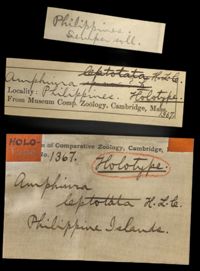 Philippines
Semper coll.
Amphiura leptotata H.L.C.
Locality: Philippines. Holotype.
From Museum Comp. Zoology, Cambridge, Mass.
1367.
HOLO-
of Comparative Zoology, Cambridge,
No. 1367. Holotype.
Amphiura
leptotata H.L.C.
Philippine Islands.